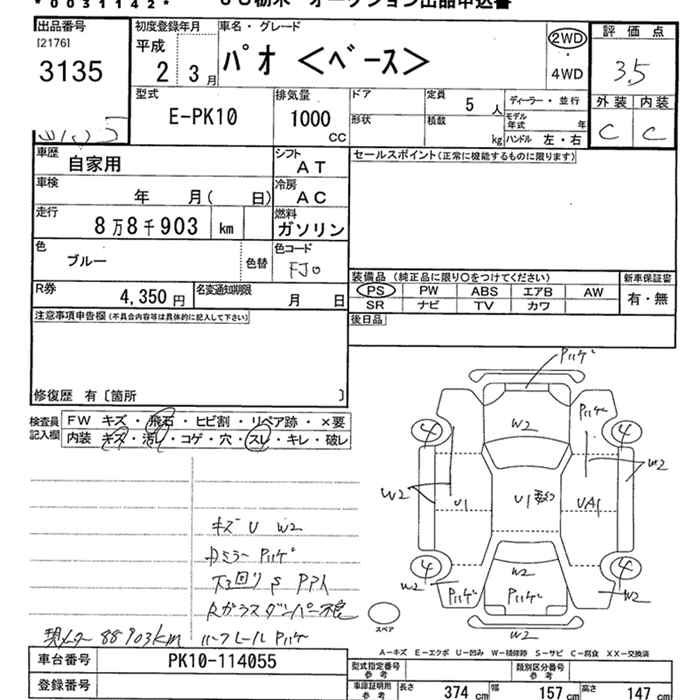 *0031142*
オークション出品申込書
出品番号
[2176]
3135
初度登録年月
平成
2 3月
車名・グレード
パオ <ベース>
2WD
・
4WD
評価点
3.5
外装 内装
C C
型式
E-PK10
排気量
1000 CC
ドア
形状
定員 5人
積載 kg
ディーラー・並行
モデル年式 年
ハンドル 左・右
車歴
自家用
シフト
AT
セールスポイント(正常に機能するものに限ります)
車検
年 月( 日)
冷房
AC
走行
8万8千903 km
燃料
ガソリン
色
ブルー
色替
色コード
FJ0
R券
4,350円
名変通知期限
月 日
装備品 (純正品に限り○をつけてください)
新車保証書
PS PW ABS エアB AW
有・無
SR ナビ TV カワ
後日品
注意事項申告欄(不具合内容等は具体的に記入して下さい)
修復歴 有〔箇所 〕
検査員
記入欄
FW キズ・飛石・ヒビ割・リペア跡・×要
内装・キズ・汚レ・コゲ・穴・スレ・キレ・破レ
キズ U W2
ドミラー Pハゲ
下回り S Pアリ
Rガラスダンパー不良
現メーター 88903km
ルーフレール Pハゲ
Pハゲ
Pハゲ
W2
4
4
W2
W2
U1
U1
UA1
4
4
W2
W2
Pハゲ
Pハゲ
W2
W2
スペア
A-キズ E-エクボ U-凹み W-補修跡 S-サビ C-腐食 XX-交換済
車台番号
PK10-114055
登録番号
型式指定番号
参考
類別区分番号
参考
車庫証明用
参考
長さ 374 cm
幅 157 cm
高さ 147 cm